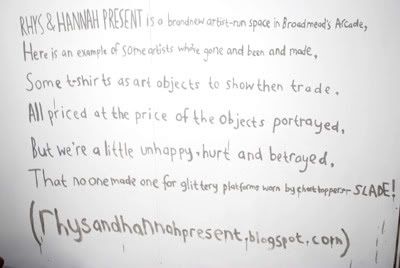 RHYS & HANNAH PRESENT is a brandnew artist-run space in Broadmead's Arcade,
Here is an example of some artists who've gone and been and made,
Some t-shirts as art objects to show then trade,
All priced at the price of the objects portrayed,
But we're a little unhappy, hurt and betrayed,
That no one made one for glittery platforms worn by chart toppers - SLADE!
(rhysandhannahpresent.blogspot.com)